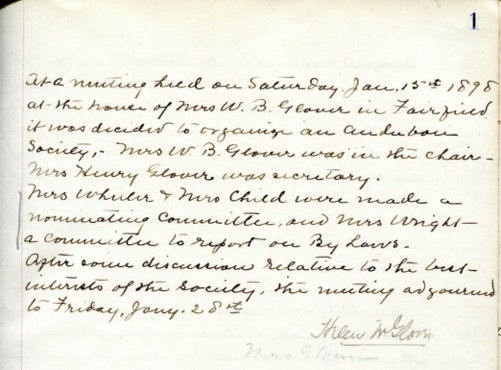 1
At a meeting held on Saturday Jan. 15th 1898
at the house of Mrs W. B. Glover in Fairfield
it was decided to organize an Audubon
Society,- Mrs W. B. Glover was in the chair-
Mrs Henry Glover was secretary.
Mrs Wheeler & Mrs Child were made a
nominating Committee, and Mrs Wright-
a committee to report on By Laws-
After some discussion relative to the best-
interests of the Society, the meeting adjourned
to Friday, Jany. 28th
Helen W. Glover
Mrs Glover